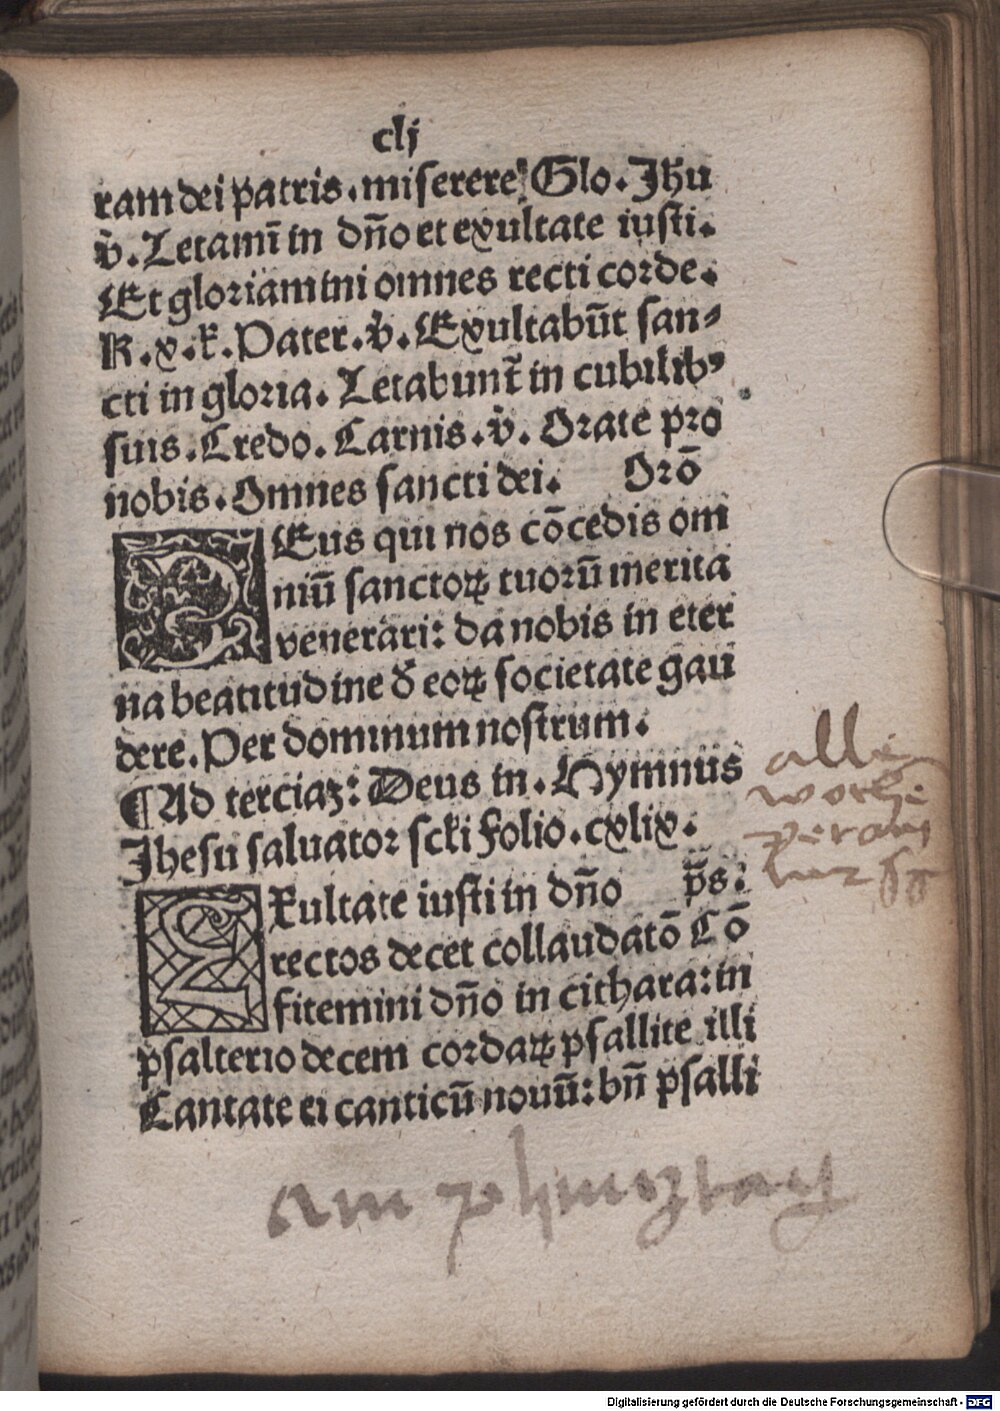 clj
ram dei patris. miserere Glo. Jhu
v̾. Letamī in dn̄o et exultate iusti.
Et gloriamini omnes recti corde.
R. x. k̄. Pater. v̾. Exultabūt san⸗
cti in gloria. Letabunt̄ in cubilibꝰ
suis. Credo. Carnis. v̾. Orate pro
nobis. Omnes sancti dei. Orō
DEus qui nos cōcedis om
niū sanctoꝝ tuorū merita
venerari: da nobis in eter
na beatitudine ð eoꝝ societate gau
dere. Per dominum nostrum.
¶Ad terciaꝫ: Deus in. Hymnus
Jhesu saluator scki folio. cxlix.
EXultate iusti in dn̄o p̄s:
rectos decet collaudatō Cō
fitemini dn̄o in cithara: in
psalterio decem cordaꝝ psallite illi
Cantate ei canticū nouū: bn̄ psalli
alle
woche
am phinztag
Digitalisierung gefördert durch die Deutsche Forschungsgemeinschaft - DFG